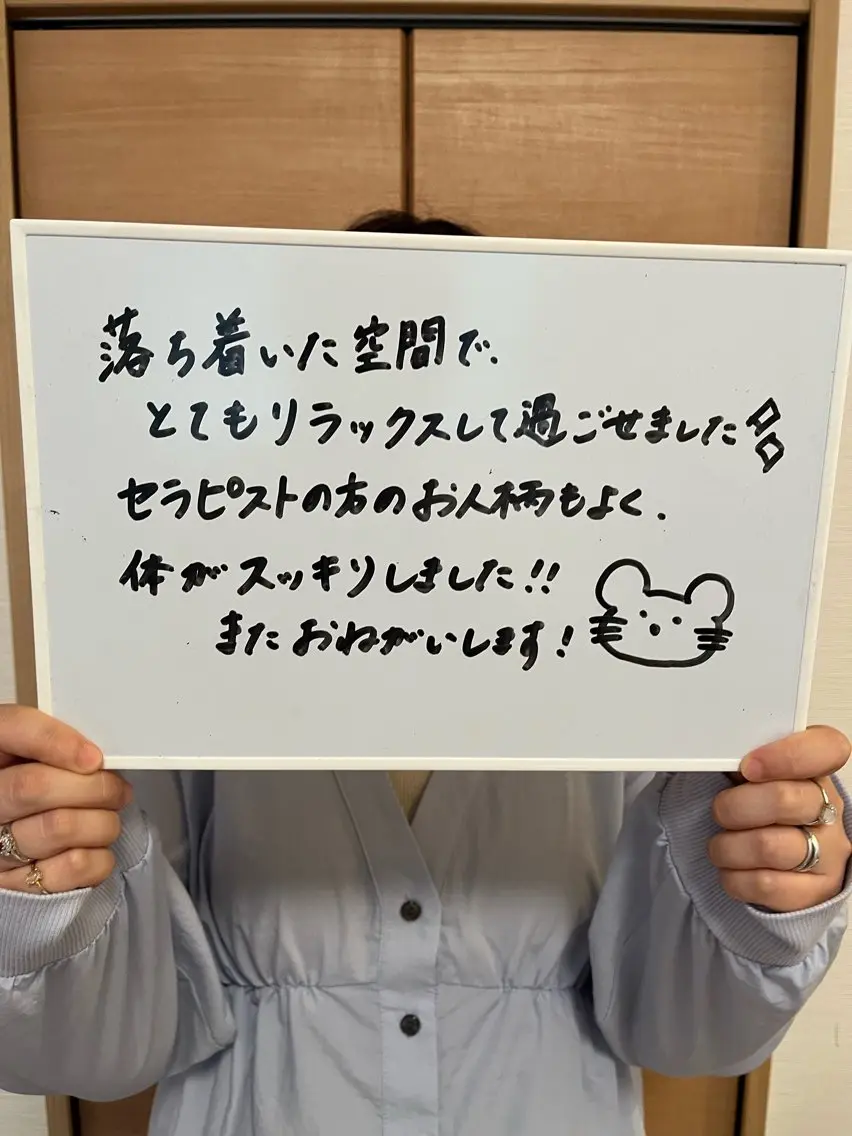 落ち着いた空間で、
とてもリラックスして過ごせました
セラピストの方のお人柄もよく、
体がスッキリしました!!
またおねがいします!